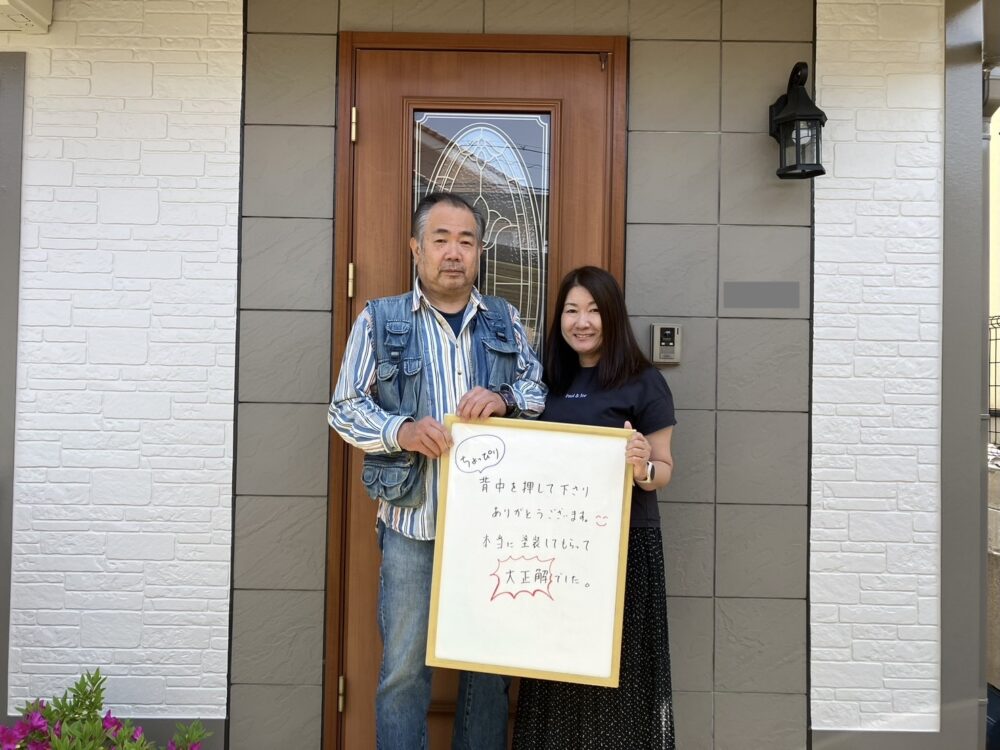 ちょっぴり
背中を押して下さり
ありがとうございます。
本当に塗装してもらって
大正解でした。
Paul & Joe